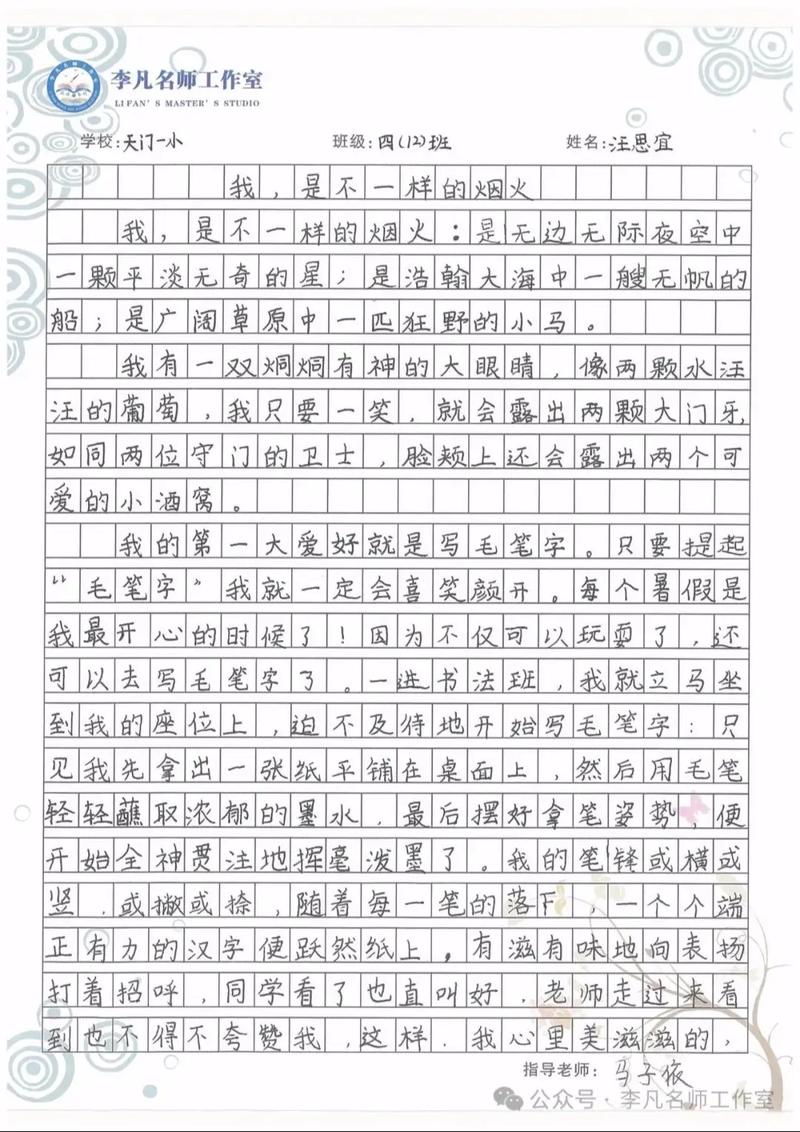 李凡名师工作室
LI FAN'S MASTER'S STUDIO
学校:天门一小 班级:四(12)班 姓名:汪思宜
我，是不一样的烟火
我，是不一样的烟火：是无边无际夜空中
一颗平淡无奇的星；是浩翰大海中一艘无帆的
船；是广阔草原中一匹狂野的小马。
我有一双炯炯有神的大眼睛，像两颗水汪
汪的葡萄，我只要一笑，就会露出两颗大门牙，
如同两位守门的卫士，脸颊上还会露出两个可
爱的小酒窝。
我的第一大爱好就是写毛笔字。只要提起
“毛笔字”我就一定会喜笑颜开。每个暑假是
我最开心的时候了！因为不仅可以玩耍了，还
可以去写毛笔字了。一进书法班，我就立马坐
到我的座位上，迫不及待地开始写毛笔字：只
见我先拿出一张纸平铺在桌面上，然后用毛笔
轻轻蘸取浓郁的墨水，最后摆好拿笔姿势，便
开始全神贯注地挥毫泼墨了。我的笔锋或横或
竖，或撇或捺，随着每一笔的落下，一个个端
正有力的汉字便跃然纸上，有滋有味地向表扬
打着招呼，同学看了也直叫好，老师走过来看
到也不得不夸赞我，这样，我心里美滋滋的，
指导老师：马子依
公众号·李凡名师工作室